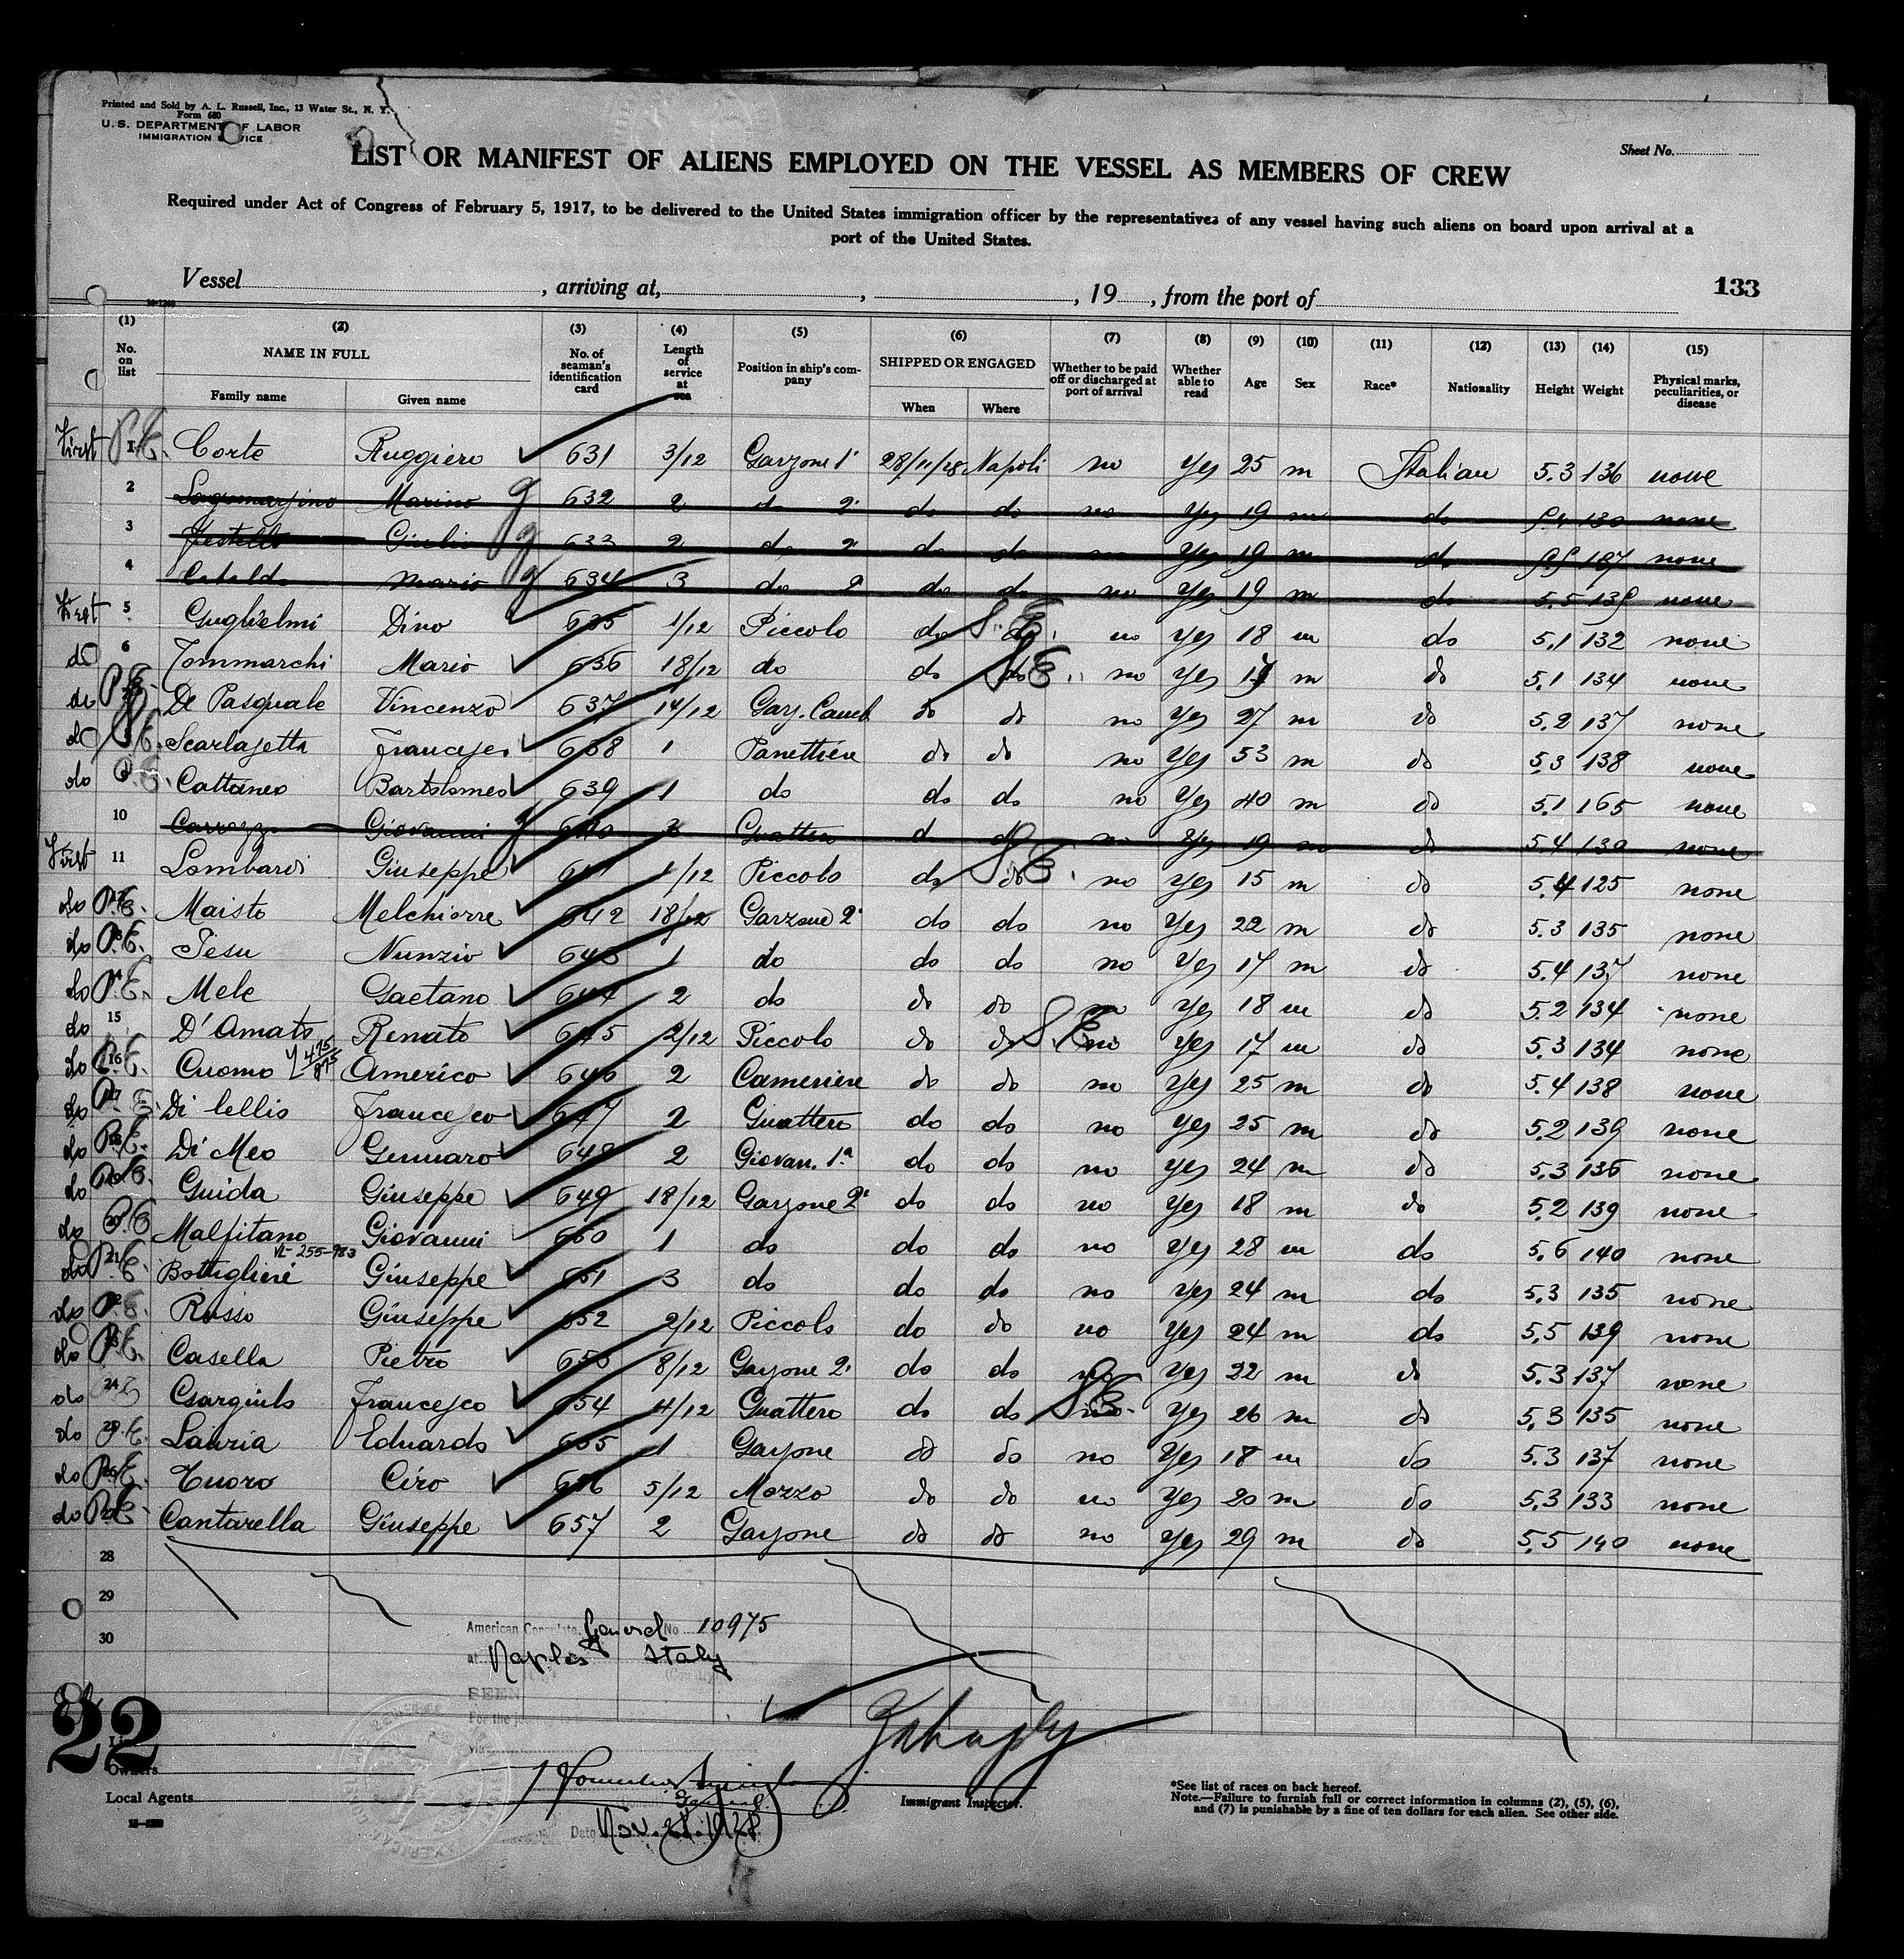 Printed and Sold by A. L. Russell, Inc., 13 Water St., N. Y.
Form 680
U. S. DEPARTMENT OF LABOR
IMMIGRATION
Sheet No.
LIST OR MANIFEST OF ALIENS EMPLOYED ON THE VESSEL AS MEMBERS OF CREW
Required under Act of Congress of February 5, 1917, to be delivered to the United States immigration officer by the representatives of any vessel having such aliens on board upon arrival at a
port of the United States.
133
Vessel , arriving at, , , 19 , from the port of
(1) (2) (3) (4) (5) (6) (7) (8) (9) (10) (11) (12) (13) (14) (15)
No. on list NAME IN FULL No. of seaman's identification card Length of service at sea Position in ship's company SHIPPED OR ENGAGED Whether to be paid off or discharged at port of arrival Whether able to read Age Sex Race* Nationality Height Weight Physical marks, peculiarities, or disease
Family name Given name When Where
First 1 Corte Ruggiero 631 3/12 Garzone 1° 28/11/28 Napoli no Yes 25 m Italian 5.3 136 none
2 Marino 632 2 do 2° do do no Yes 19 m do 5.4 130 none
3 Giulio 633 2 do 2 do do no Yes 19 m do none
4 Mario 634 3 do 2 do do no Yes 19 m do 5.5 none
First 5 Guglielmi Dino 635 1/12 Piccolo do do no Yes 18 m do 5.1 132 none
do 6 Tommarchi Mario 636 18/12 do do do no Yes m do 5.1 134 none
do De Pasquale Vincenzo 637 14/12 Garz. Camb do do no Yes 27 m do 5.2 137 none
do Francesco 638 1 Panettiere do do no Yes 53 m do 5.3 138 none
do Cattaneo Bartolomeo 639 1 do do do no Yes 40 m do 5.1 165 none
10 Giovanni 640 3 Guattero d do no Yes 19 m do 5.4 130 none
First 11 Lombardi Giuseppe 641 1/12 Piccolo do do no Yes 15 m do 5.4 125 none
do Maisto Melchiorre 642 18/12 Garzone 2° do do no Yes 22 m do 5.3 135 none
do Nunzio 643 1 do do do no Yes 17 m do 5.4 137 none
do Mele Gaetano 644 2 do do do no Yes 18 m do 5.2 134 none
do 15 D'Amato Renato 645 2/12 Piccolo do do no Yes 17 m do 5.3 134 none
do 16 Cuomo Americo 646 2 Cameriere do do no Yes 25 m do 5.4 138 none
do 17 Di Lellis Francesco 647 2 Guattero do do no Yes 25 m do 5.2 139 none
do Di Meo Gennaro 648 2 Giovan. 1ª do do no Yes 24 m do 5.3 136 none
do Guida Giuseppe 649 18/12 Garzone 2° do do no Yes 18 m do 5.2 139 none
do 20 Malfitano Giovanni 650 1 do do do no Yes 28 m do 5.6 140 none
VL-255-983
do 21 Bottiglieri Giuseppe 651 3 do do do no Yes 24 m do 5.3 135 none
do Russo Giuseppe 652 2/12 Piccolo do do no Yes 24 m do 5.5 139 none
do Casella Pietro 653 8/12 Garzone 2° do do no Yes 22 m do 5.3 137 none
do 24 Francesco 654 4/12 Guattero do do no Yes 26 m do 5.3 135 none
do Lauria Eduardo 655 1 Garzone do do no Yes 18 m do 5.3 137 none
do Tuoro Ciro 656 5/12 Mozzo do do no Yes 20 m do 5.3 133 none
do Cantarella Giuseppe 657 2 Garzone do do no Yes 29 m do 5.5 140 none
28
29
30
American Consulate General No. 10975
at Naples Italy
SEEN
For the
via
22
Owners
Local Agents
Immigrant Inspector.
Date Nov. 28. 1928
*See list of races on back hereof.
Note.—Failure to furnish full or correct information in columns (2), (5), (6),
and (7) is punishable by a fine of ten dollars for each alien. See other side.